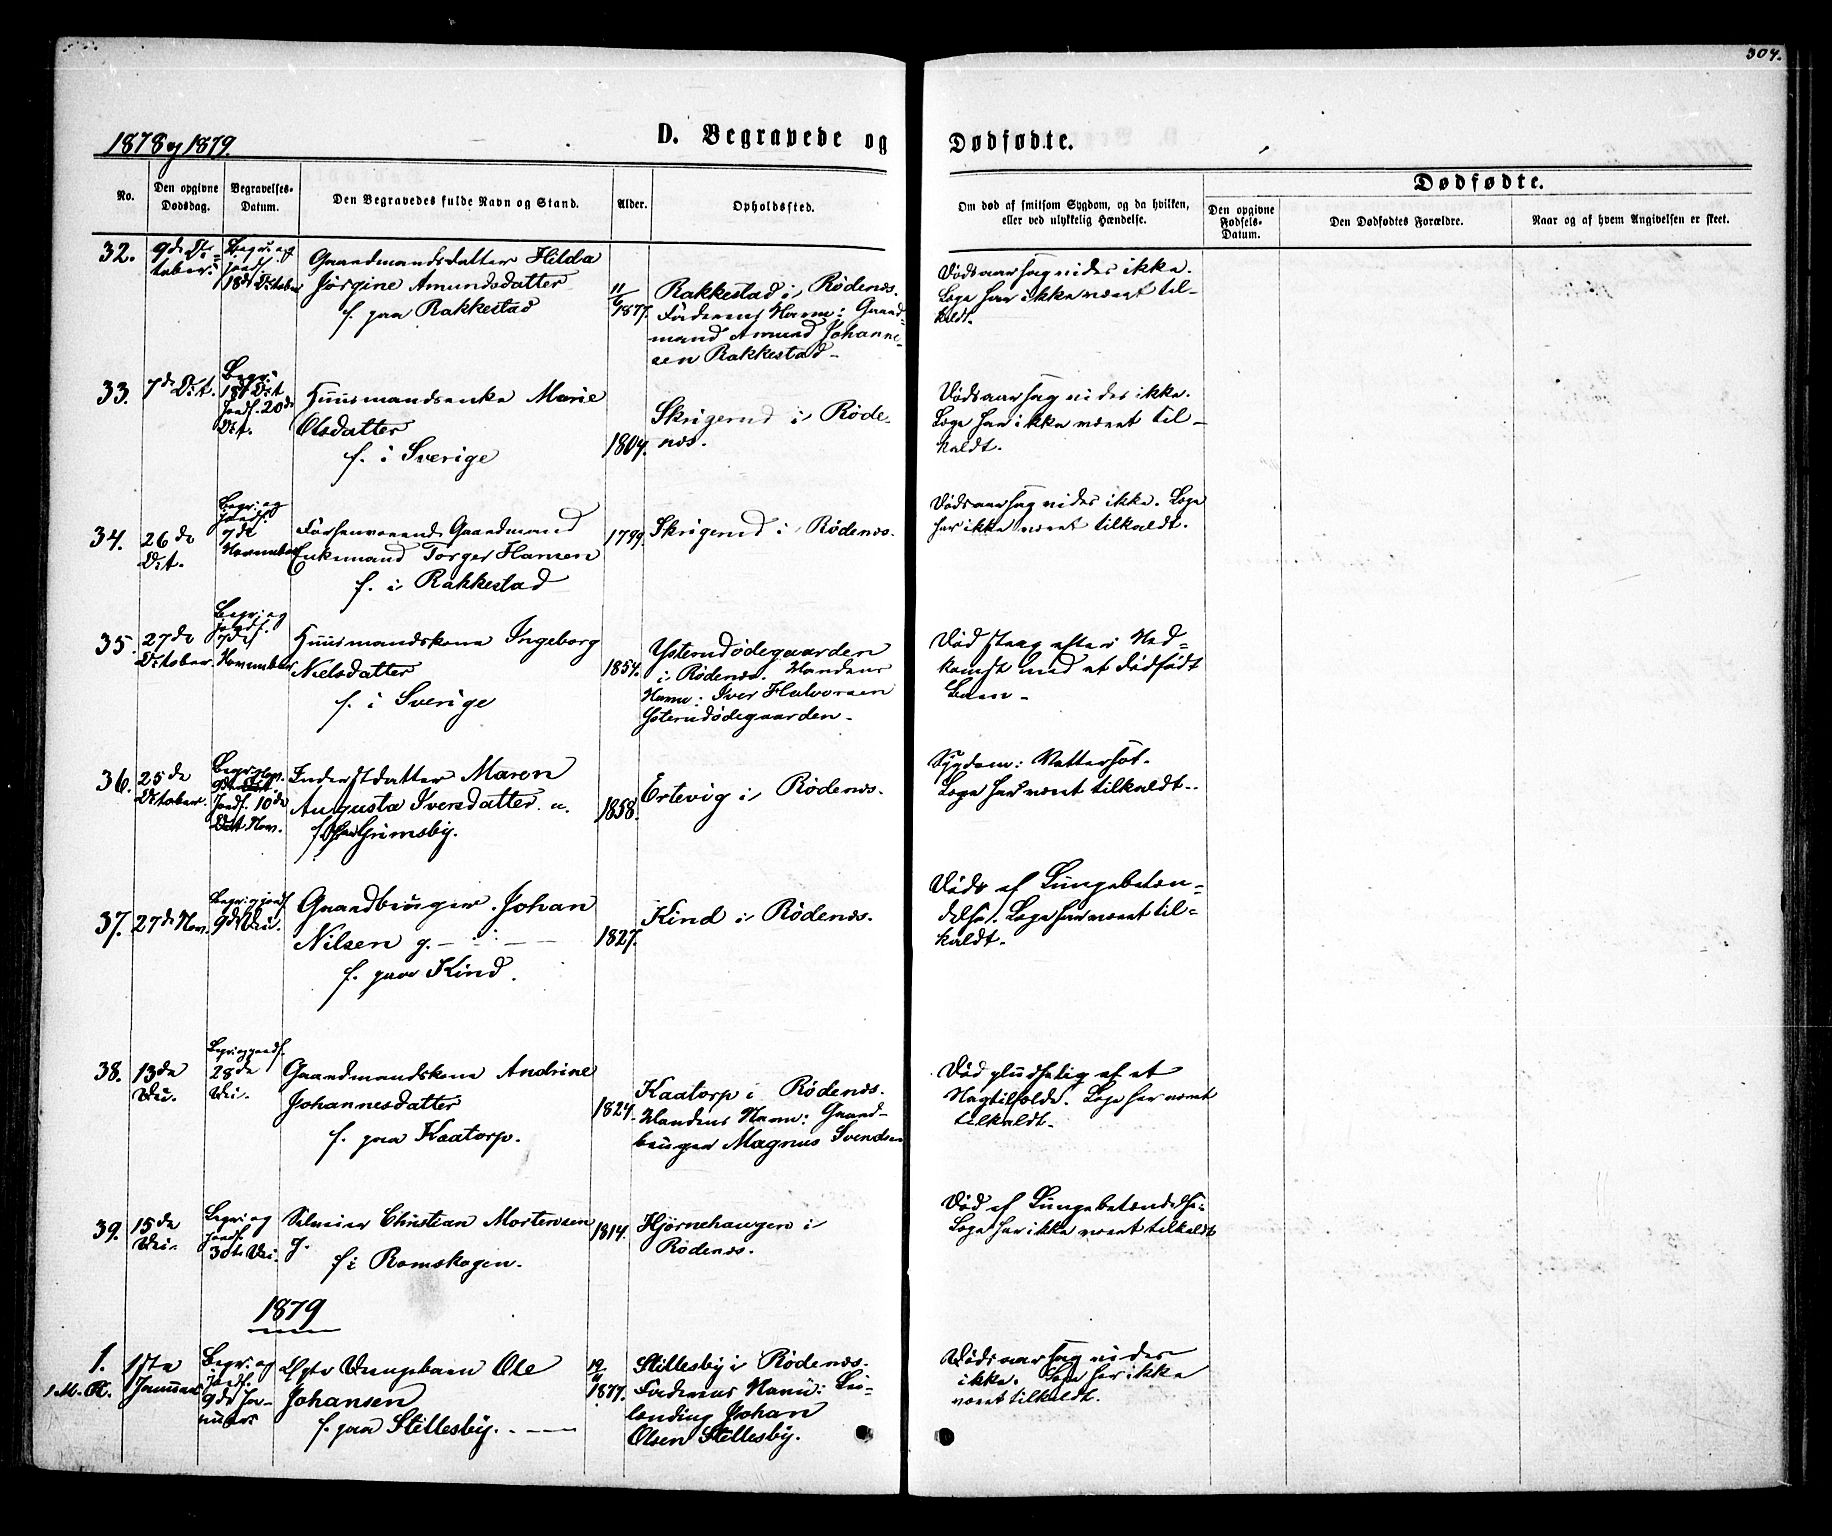 304.
1878 og 1879.
D. Begravede og
Dødfødte.
No.
Den opgivne
Dødsdag.
Begravelses-
Datum.
Den Begravedes fulde Navn og Stand.
Alder.
Opholdssted.
Om død af smitsom Sygdom, og da hvilken,
eller ved ulykkelig Hændelse.
Dødfødte.
Den opgivne
Fødsels-
Datum.
Den Dødfødtes Forældre.
Naar og af hvem Angivelsen er skeet.
32.
9de Oc-
tober.
Begr. og
Jordf.
18de October
Gaardmandsdatter Hilda
Jørgine Amundsdatter
f. paa Rakkestad
11/6 1877.
Rakkestad i Rødenæs.
Faderens Navn: Gaard-
mand Amund Johanne-
sen Rakkestad
Dødsaarsag vides ikke.
Læge har ikke været til-
kaldt.
33.
7de Oct.
Begr.
18de Oct
Jordf. 20de
Oct.
Huusmandsenke Marie
Olsdatter
f. i Sverige
1804.
Skrigerud i Røde-
næs.
Dødsaarsag vides ikke.
Læge har ikke været til-
kaldt.
34.
26de
Oct.
Begr. og
Jordf.
7de
November
Forhenværende Gaardmand
Enkemand Torger Hansen
f. i Rakkestad
1799.
Skrigerud i Rødenæs.
Dødsaarsag vides ikke. Læge
har ikke været tilkaldt.
35.
27de
October.
Begr. og
Jordf.
7de
November
Huusmandskone Ingeborg
Nielsdatter
f. i Sverige
1854.
Ysterudødegaarden
i Rødenæs. Mandens
Navn: Iver Halvorsen
Ysterudødegaarden.
Død strax efter Ned-
komst med et dødfødt
Barn
36.
25de
October.
Begr. Nov.
9de Oct.
Jordf. 10de
Oct Nov.
Inderstdatter Maren
Augusta Iversdatter u.
f. paa Grimsby.
1858.
Ertevig i Rødenæs.
Sygdom: Vattersot.
Læge har været tilkaldt.
37.
27de Nov.
Begr. og Jordf.
9de Dec.
Gaardbruger Johan
Nilsen g.
f. paa Kind.
1827.
Kind i Rødenæs.
Døde af Lungebetæn-
delse. Læge har været til-
kaldt.
38.
13de
Dec.
Begr. og Jordf.
28de
Dec.
Gaardmandskone Andrine
Johannesdatter
f. paa Kaatorp.
1824.
Kaatorp i Rødenæs.
Mandens Navn: Gaard-
bruger Magnus Svendsen
Død pludselig af et
tilfælde. Læge har været
tilkaldt.
39.
15de
Dec.
Begr. og
Jordf.
30te Dec.
Christian Mortensen
g.
f. i Romskogen.
1814.
Hjørnehaugen i
Rødenæs.
Død af Lungebetændelse.
Læge har ikke været tilkaldt
1879
1.
1 M. K.
1ste
Januar
Begr. og
Jordf.
9de Ja-
nuar
Ægte Drengebarn Ole
Johansen
f. paa Stillesby.
1877.
Stillesby i Rødenæs.
Faderens Navn: Lei-
lending Johan
Olsen Stillesby.
Dødsaarsag vides
ikke. Læge har ikke
været tilkaldt.